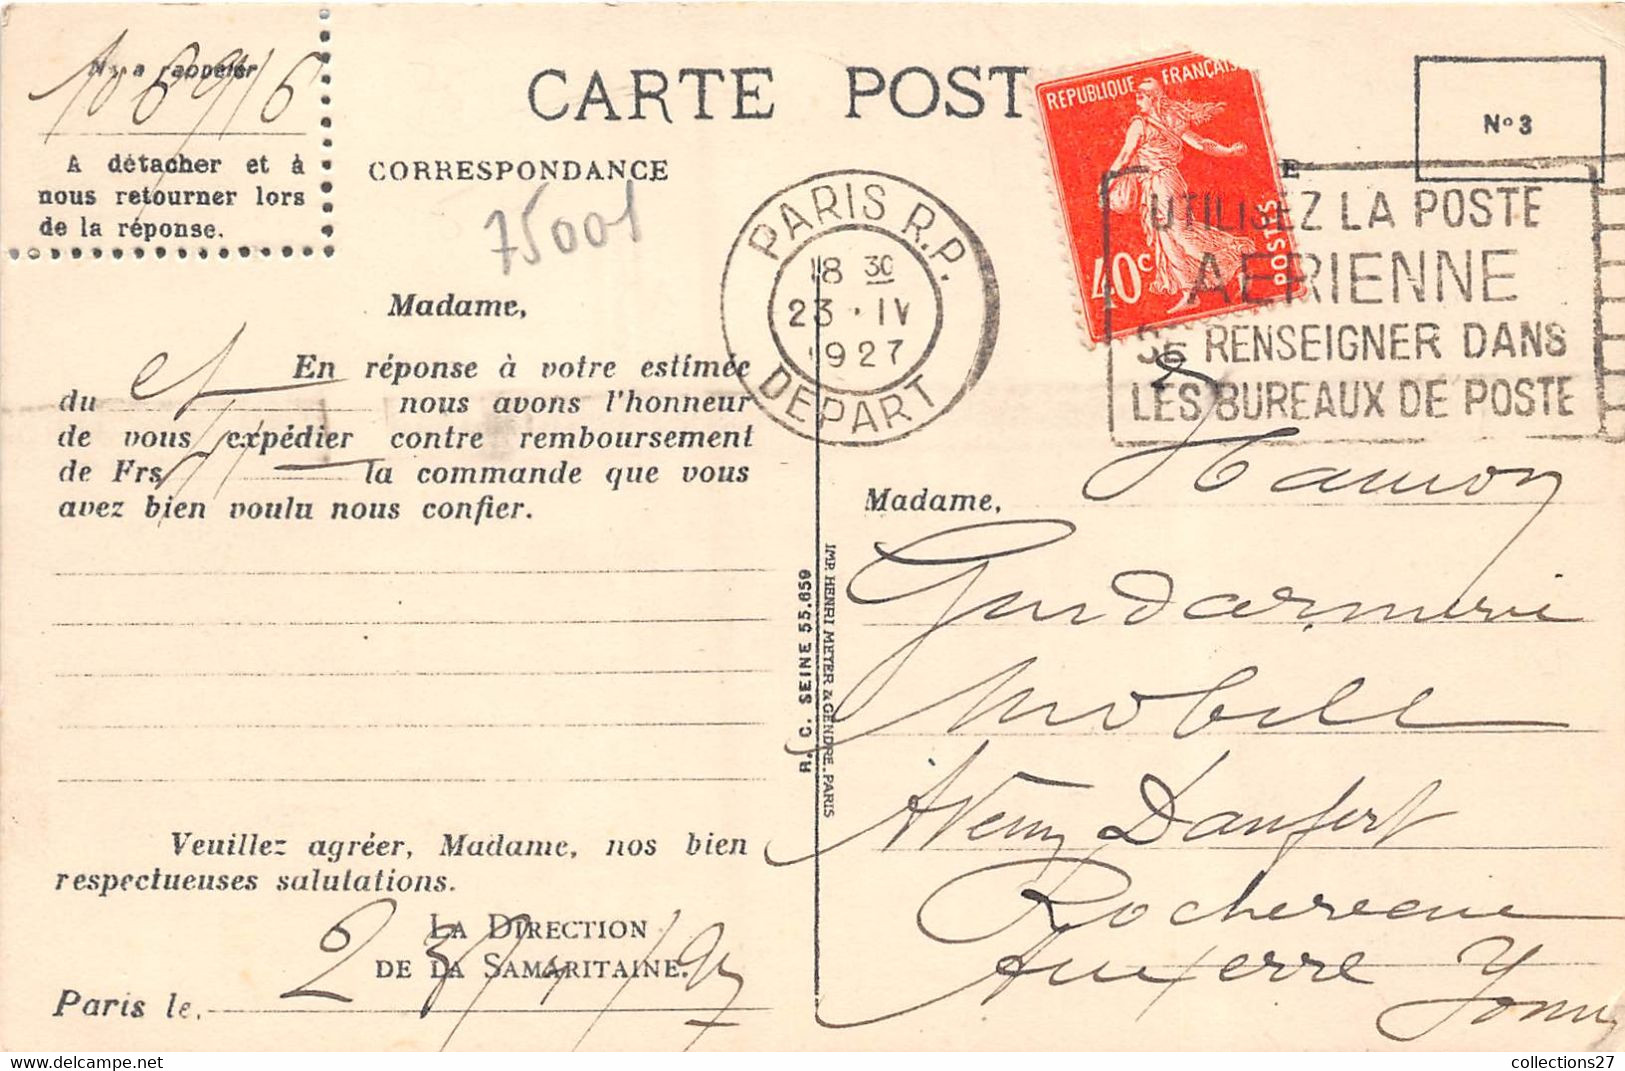 No à rappeler
106916
A détacher et à
nous retourner lors
de la réponse.
CARTE POST
E
CORRESPONDANCE
75001
REPUBLIQUE FRANÇAIS
POSTES
40c
No 3
PARIS R.P.
18 30
23 · IV
1927
DEPART
UTILISEZ LA POSTE
AERIENNE
SE RENSEIGNER DANS
LES BUREAUX DE POSTE
Madame,
En réponse à votre estimée
du nous avons l'honneur
de vous expédier contre remboursement
de Frs la commande que vous
avez bien voulu nous confier.
Veuillez agréer, Madame, nos bien
respectueuses salutations.
LA DIRECTION
DE LA SAMARITAINE.
Paris le, 23/4/27
R. C. SEINE 55.659
IMP. HENRI MEYER & GENDRE. PARIS
Madame, Hamon
Gendarmerie
Mobile
Danfert
Rochereau
Auxerre Yonne
collections27